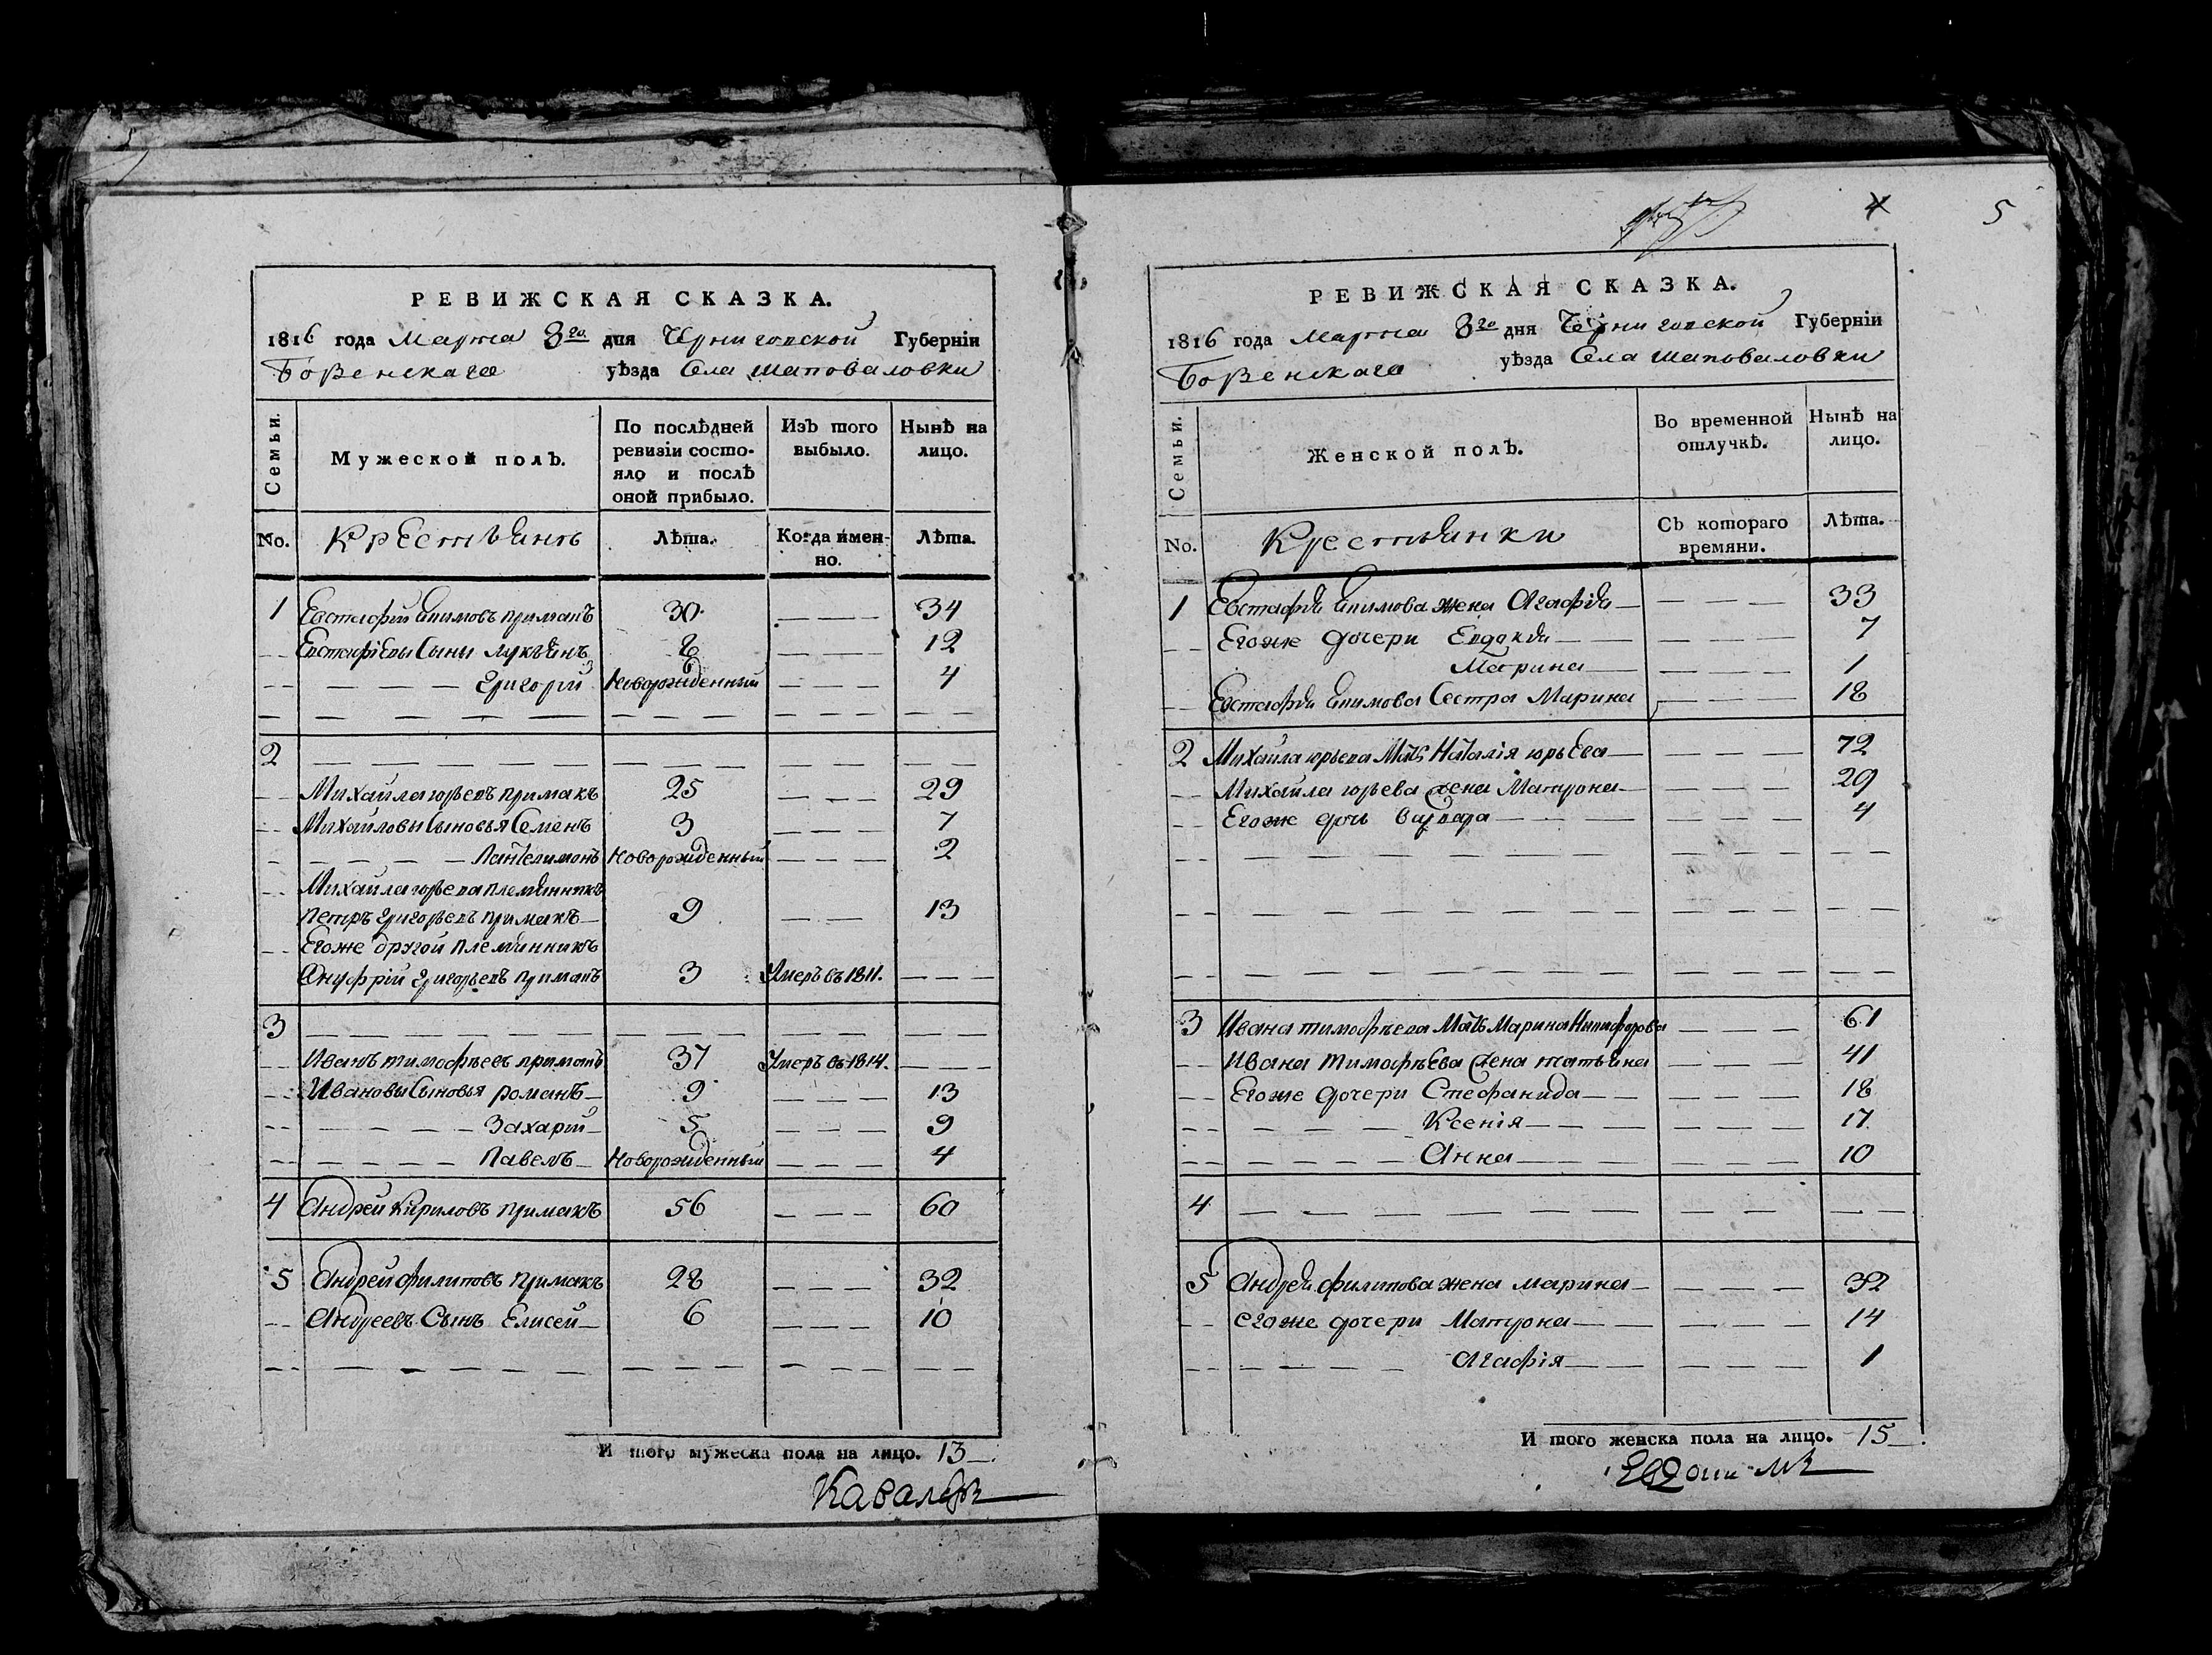 РЕВИЖСКАЯ СКАЗКА.
1816 года Марта 3го дня Черниговской Губерніи
Борзенскаго уѣзда Села Шаповаловки
Семьи.
Мужеской полъ.
По послѣдней ревизіи состояло и послѣ оной прибыло.
Изъ того выбыло.
Нынѣ на лицо.
No. Крестьянъ Лѣта. Когда именно. Лѣта.
1 Евстафій Ѣпимовъ примакъ 30 — — — 34
Евстафіевы Сыны Лукъянъ 8 — — — 12
— — — — Григорій Новорожденный — — — 4
2 — — — — — —
Михайла юрьевъ примакъ 25 — — — 29
Михайловы Сыновья Семенъ 3 — — — 7
— — — — Пантелимонъ Новорожденный — — — 2
Михайла юрьева племянникъ
Петръ григорьевъ примакъ 9 — — 13
Егоже другой племянникъ
Онуфрій григорьевъ примакъ 3 Умеръ въ 1811. — — —
3 — — — — — —
Иванъ тимофѣевъ примакъ 37 Умеръ въ 1814. — — —
Ивановы Сыновья романъ 9 — — — 13
— — — — Захарій 5 — — — 9
— — — — Павелъ Новорожденный — — — 4
4 Андрей Кириловъ примакъ 56 — — — 60
5 Андрей филиповъ примакъ 28 — — — 32
Андреевъ Сынъ Елисей 6 — — — 10
И того мужеска пола на лицо. 13
Кавалеръ
4 5
РЕВИЖСКАЯ СКАЗКА.
1816 года Марта 3го дня Черниговской Губерніи
Борзенскаго уѣзда Села Шаповаловки
Семьи.
Женской полъ.
Во временной отлучкѣ.
Нынѣ на лицо.
No. Крестьянки Съ котораго времяни. Лѣта.
1 Евстафія жена Агафія — — — 33
Егоже дочери Евдокія — — — 7
Марина — — — 1
Евстафія Сестра Марина — — — 18
2 Михайла юрьева Мать Наталія юрьева — — — 72
Михайла юрьева жена Матрона — — — 29
Егоже дочь Варвара — — — 4
3 Ивана тимофѣева Мать Марина Никифорова — — — 61
Ивана тимофѣева жена татьяна — — — 41
Егоже дочери Стефанида — — — 18
— — — — Ксенія — — — 17
— — — — Анна — — — 10
4 — — — — — —
5 Андрея филипова жена марина — — — 32
егоже дочери Матрона — — — 14
— — — — Агафія — — — 1
И того женска пола на лицо. 15